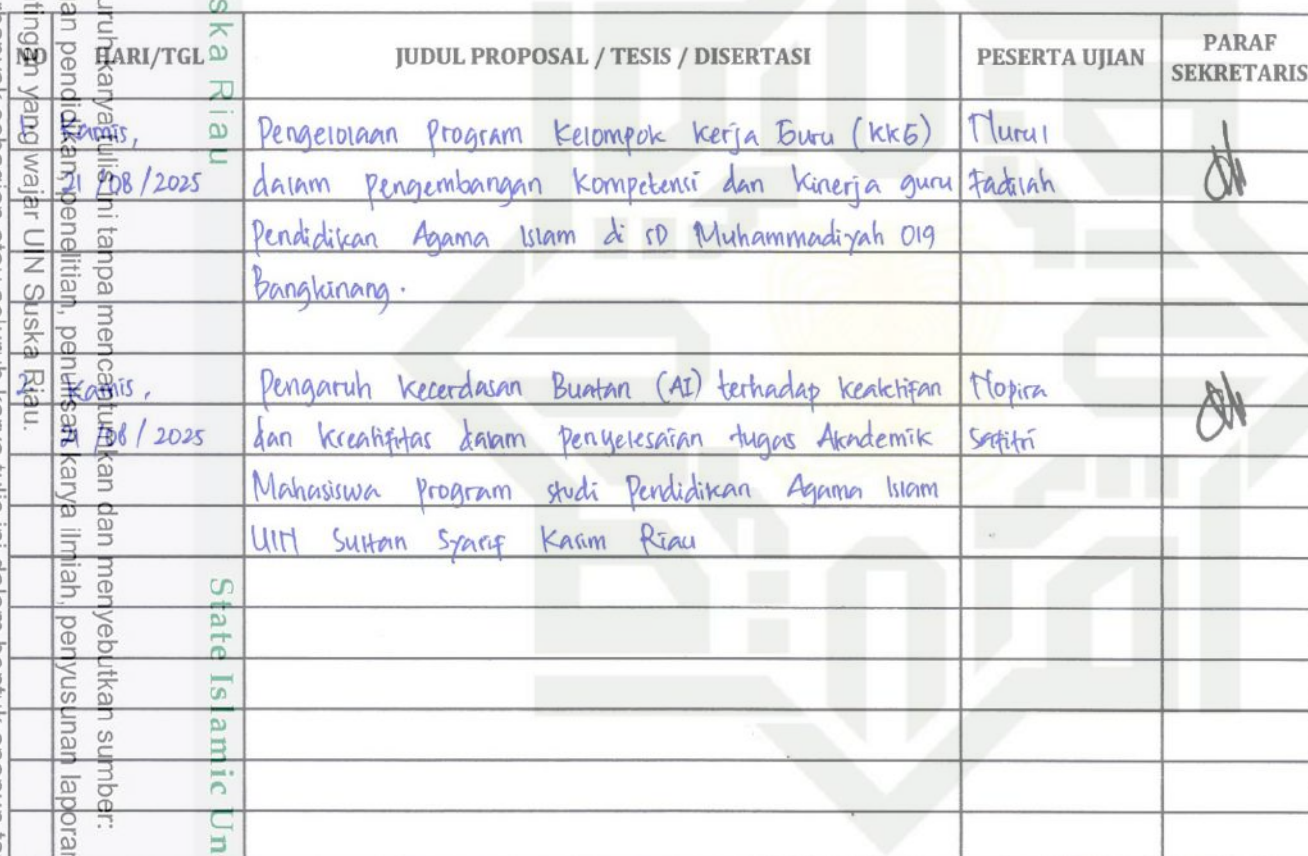 NO HARI/TGL JUDUL PROPOSAL / TESIS / DISERTASI PESERTA UJIAN PARAF SEKRETARIS
Kamis, Pengelolaan Program Kelompok Kerja Guru (KKG) Nurul
21/08/2025 dalam Pengembangan Kompetensi dan Kinerja guru Fadilah
Pendidikan Agama Islam di SD Muhammadiyah 019
Bangkinang.
2. Kamis, Pengaruh Kecerdasan Buatan (AI) terhadap keaktifan Nopira
/08/2025 dan kreatifitas dalam Penyelesaian tugas Akademik Safitri
Mahasiswa Program studi Pendidikan Agama Islam
UIN Sultan Syarif Kasim Riau
ska Riau
State Islamic Un
uruh karya tulis ini tanpa mencantumkan dan menyebutkan sumber:
an pendidikan, penelitian, penulisan karya ilmiah, penyusunan laporan
tingan yang wajar UIN Suska Riau.